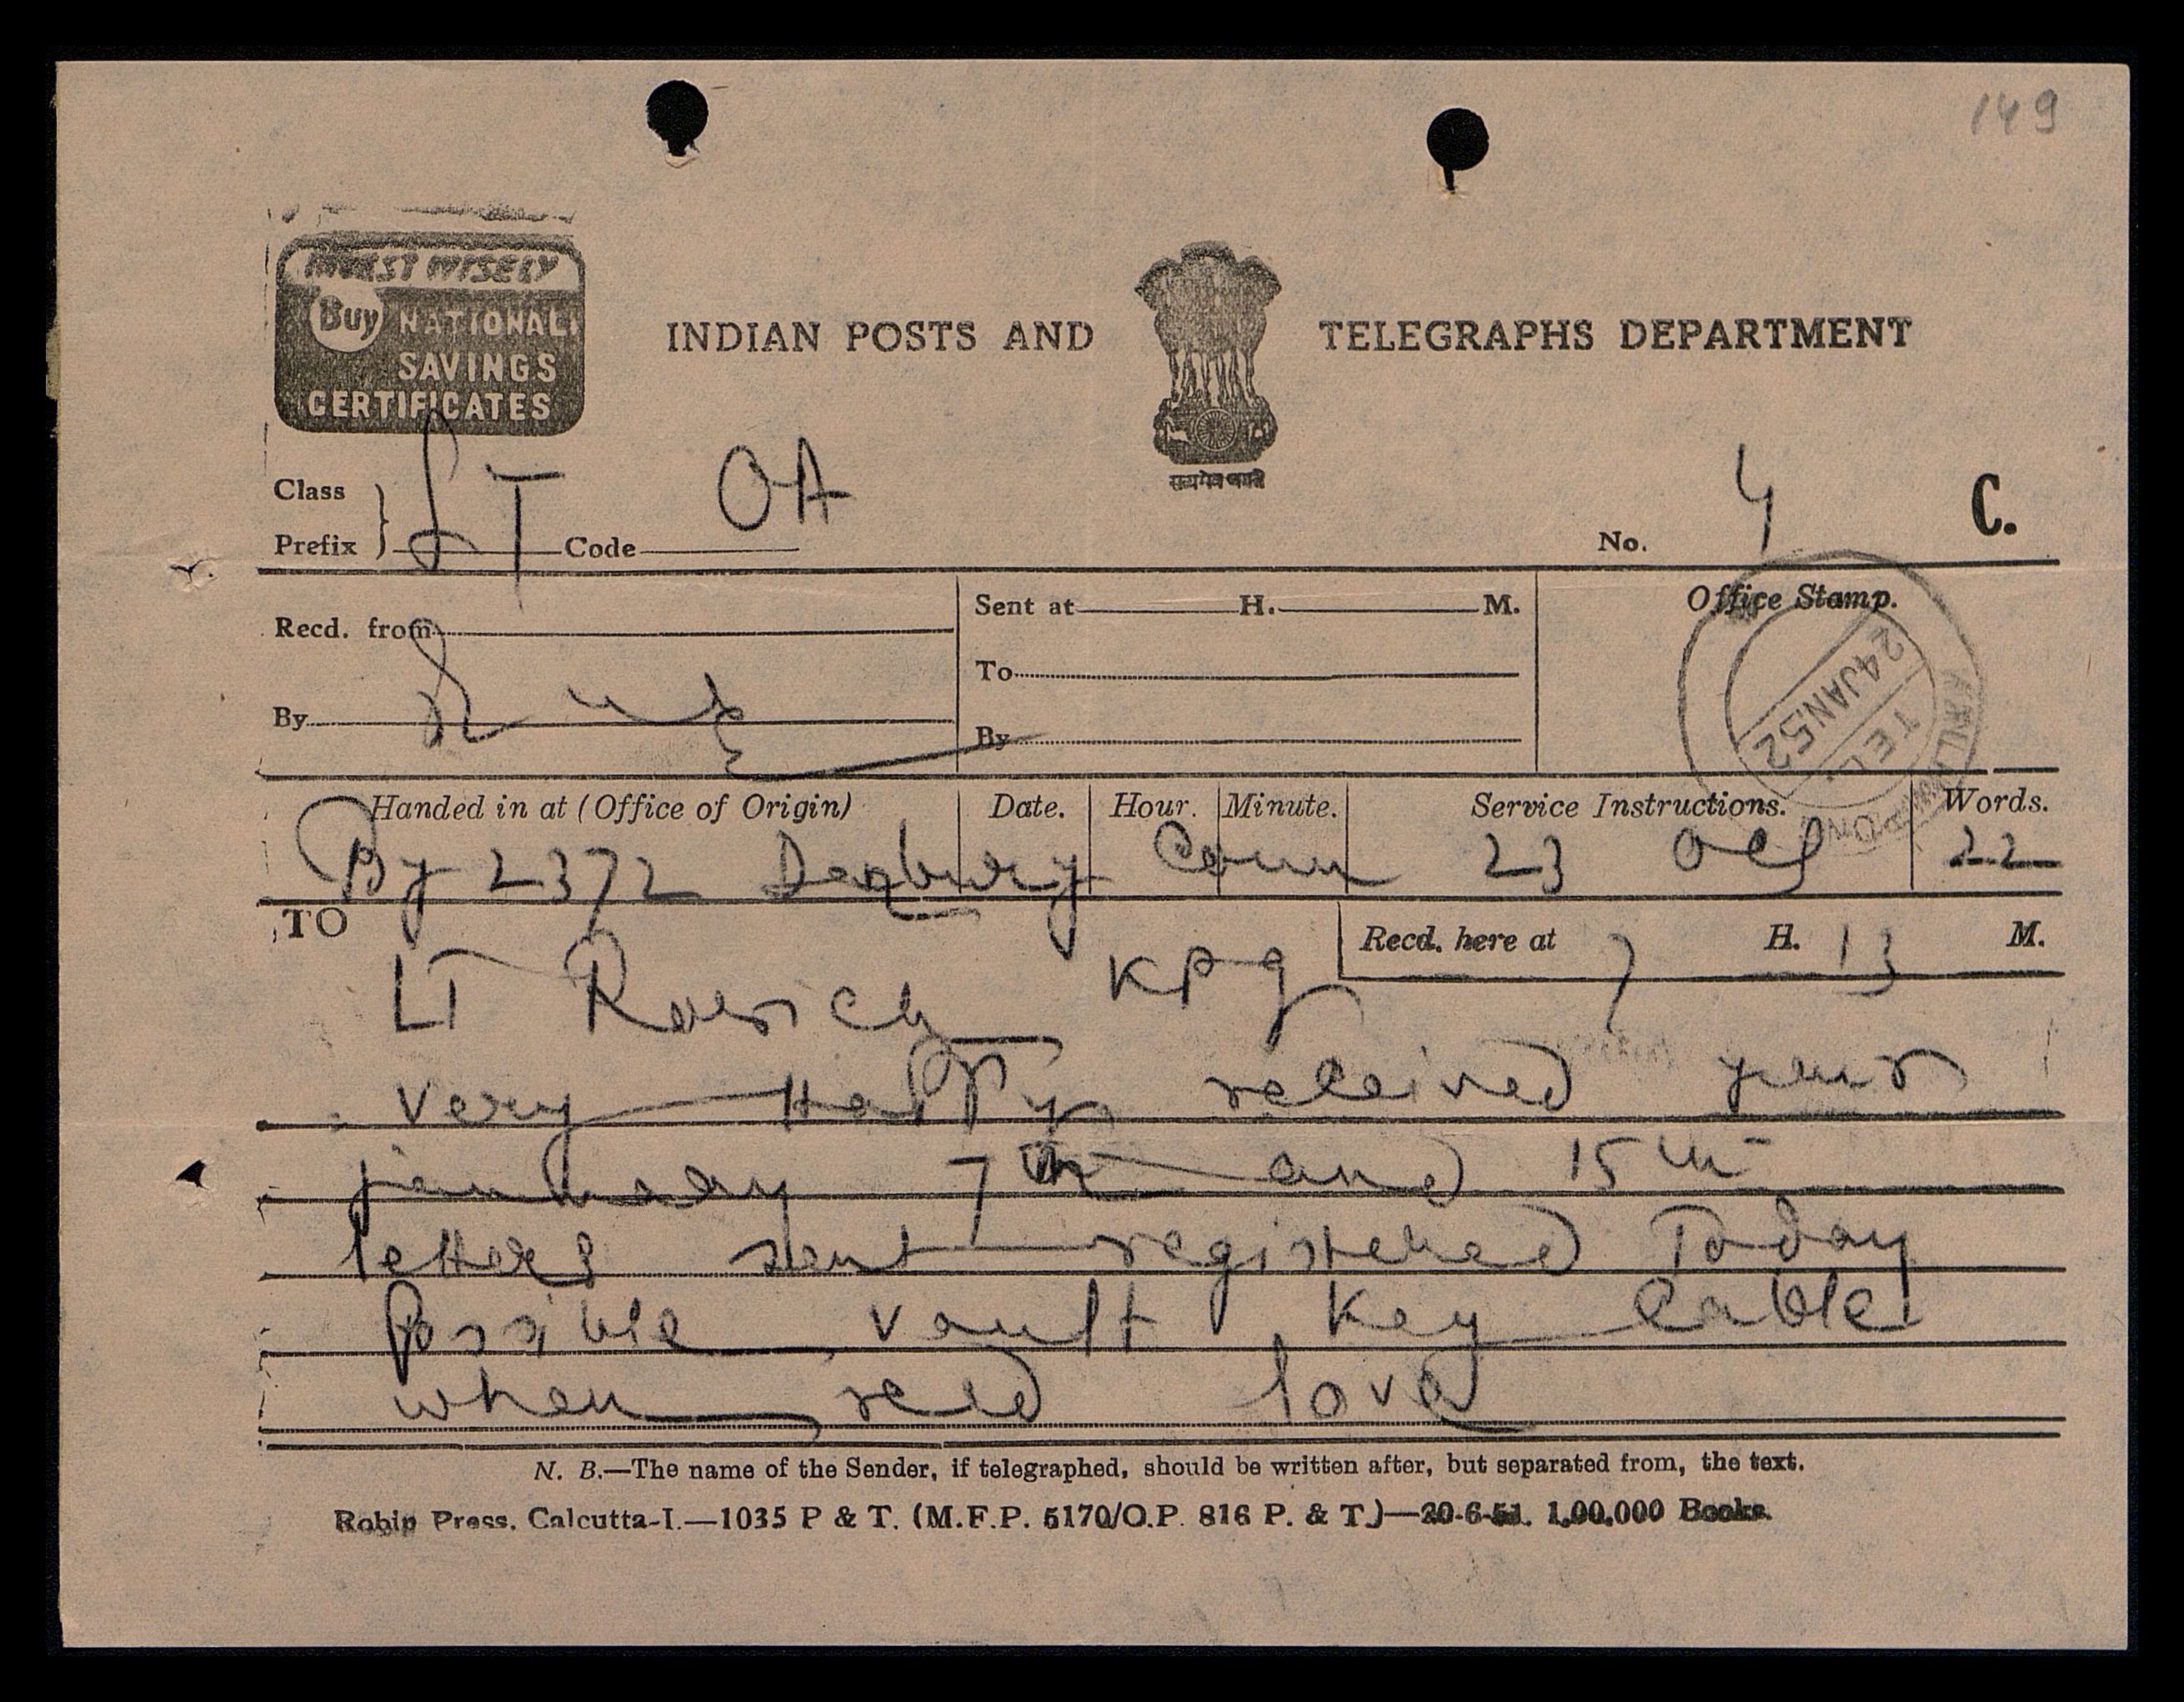 149
INVEST WISELY
Buy NATIONAL
SAVINGS
CERTIFICATES
INDIAN POSTS AND TELEGRAPHS DEPARTMENT
सत्यमेव जयते
Class
Prefix LT Code OA No. 4 C.
Recd. from Sent at H. M. Office Stamp.
To
By By
24 JAN 52
TEL.
Handed in at (Office of Origin) Date. Hour. Minute. Service Instructions. Words.
By 2372 Danbury Conn 23 22
TO Recd. here at 7 H. 13 M.
LT Roerich KPG
very Happy received your
january 7th and 15th
letters sent registered Today
Possible vault key cable
when recd love
N. B.—The name of the Sender, if telegraphed, should be written after, but separated from, the text.
Robin Press, Calcutta-I.—1035 P & T. (M.F.P. 5170/O.P. 816 P. & T.)—20-6-51. 1,00,000 Books.